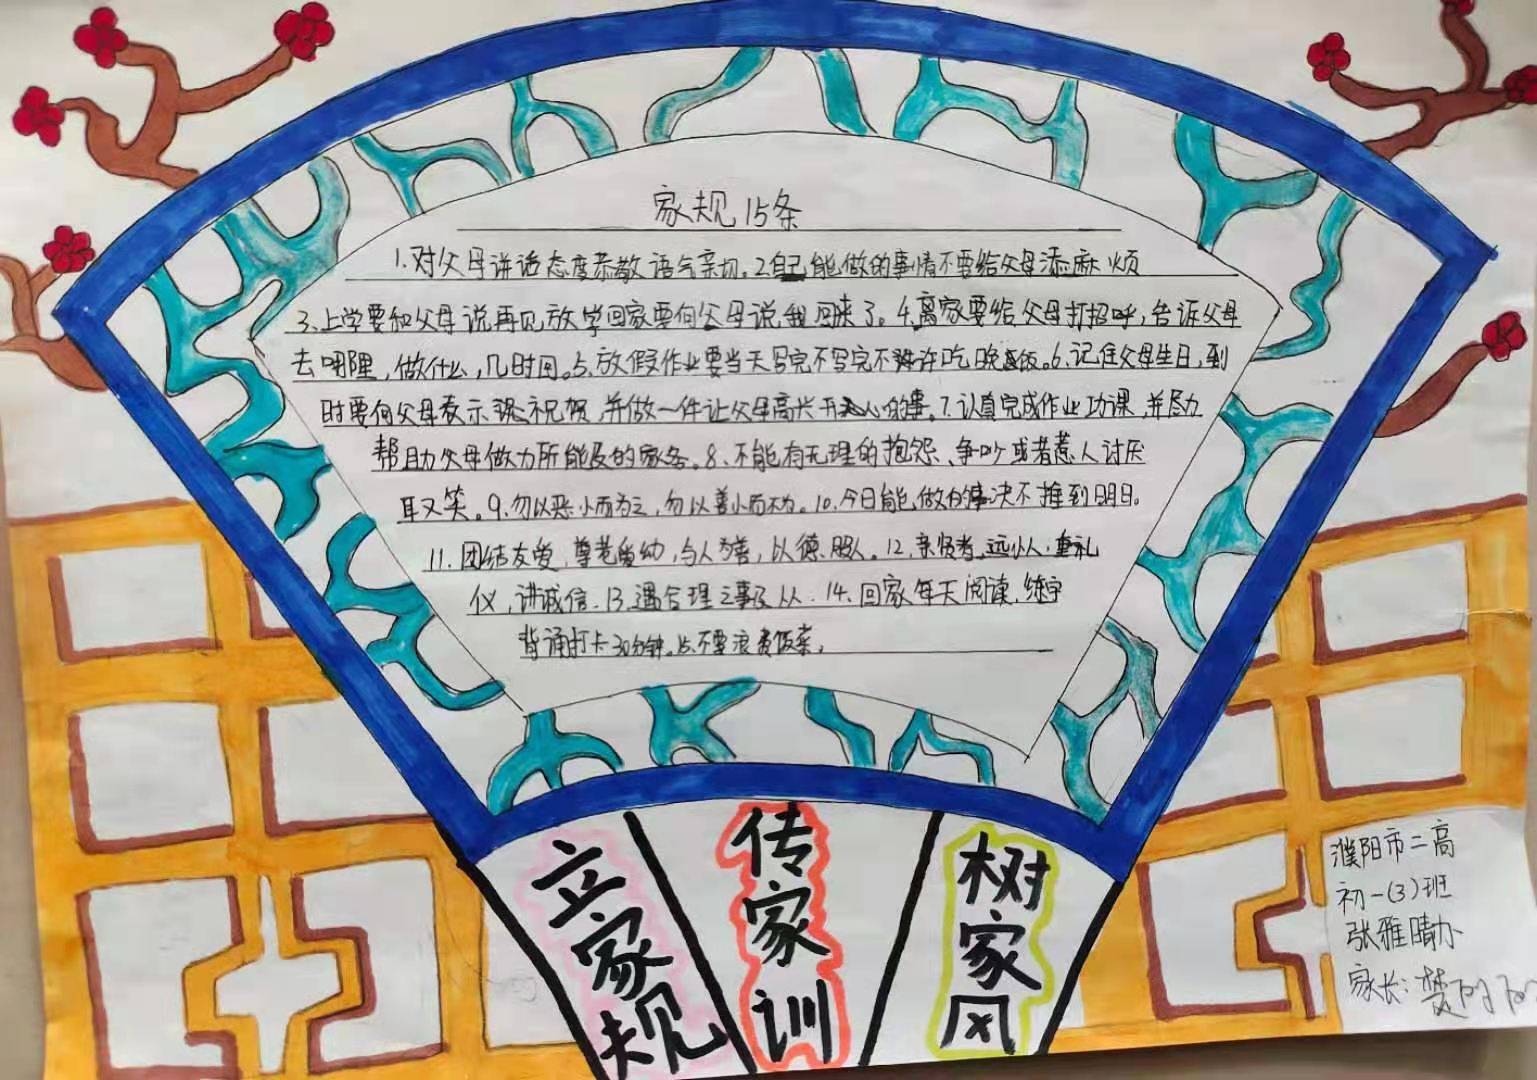 家规15条
1.对父母讲话态度恭敬语气亲切。2.自己能做的事情不要给父母添麻烦
3.上学要和父母说再见放学回家要向父母说我回来了。4.离家要给父母打招呼,告诉父母
去哪里,做什么,几时回。5.放假作业要当天写完不写完不许吃晚饭。6.记住父母生日,到
时要向父母表示祝贺,并做一件让父母高兴开心的事。7.认真完成作业功课,并尽力
帮助父母做力所能及的家务。8.不能有无理的抱怨、争吵或者惹人讨厌
取笑。9.勿以恶小而为之,勿以善小而不为。10.今日能做的事决不推到明日。
11.团结友爱,尊老爱幼,与人为善,以德服人。12.亲贤者,远小人,重礼
仪,讲诚信.13.遇合理之事及从.14.回家每天阅读,练字
背诵打卡30分钟。15.不要浪费饭菜,
立家规
传家训
树家风
濮阳市二高
初一(3)班
张雅晴办
家长: